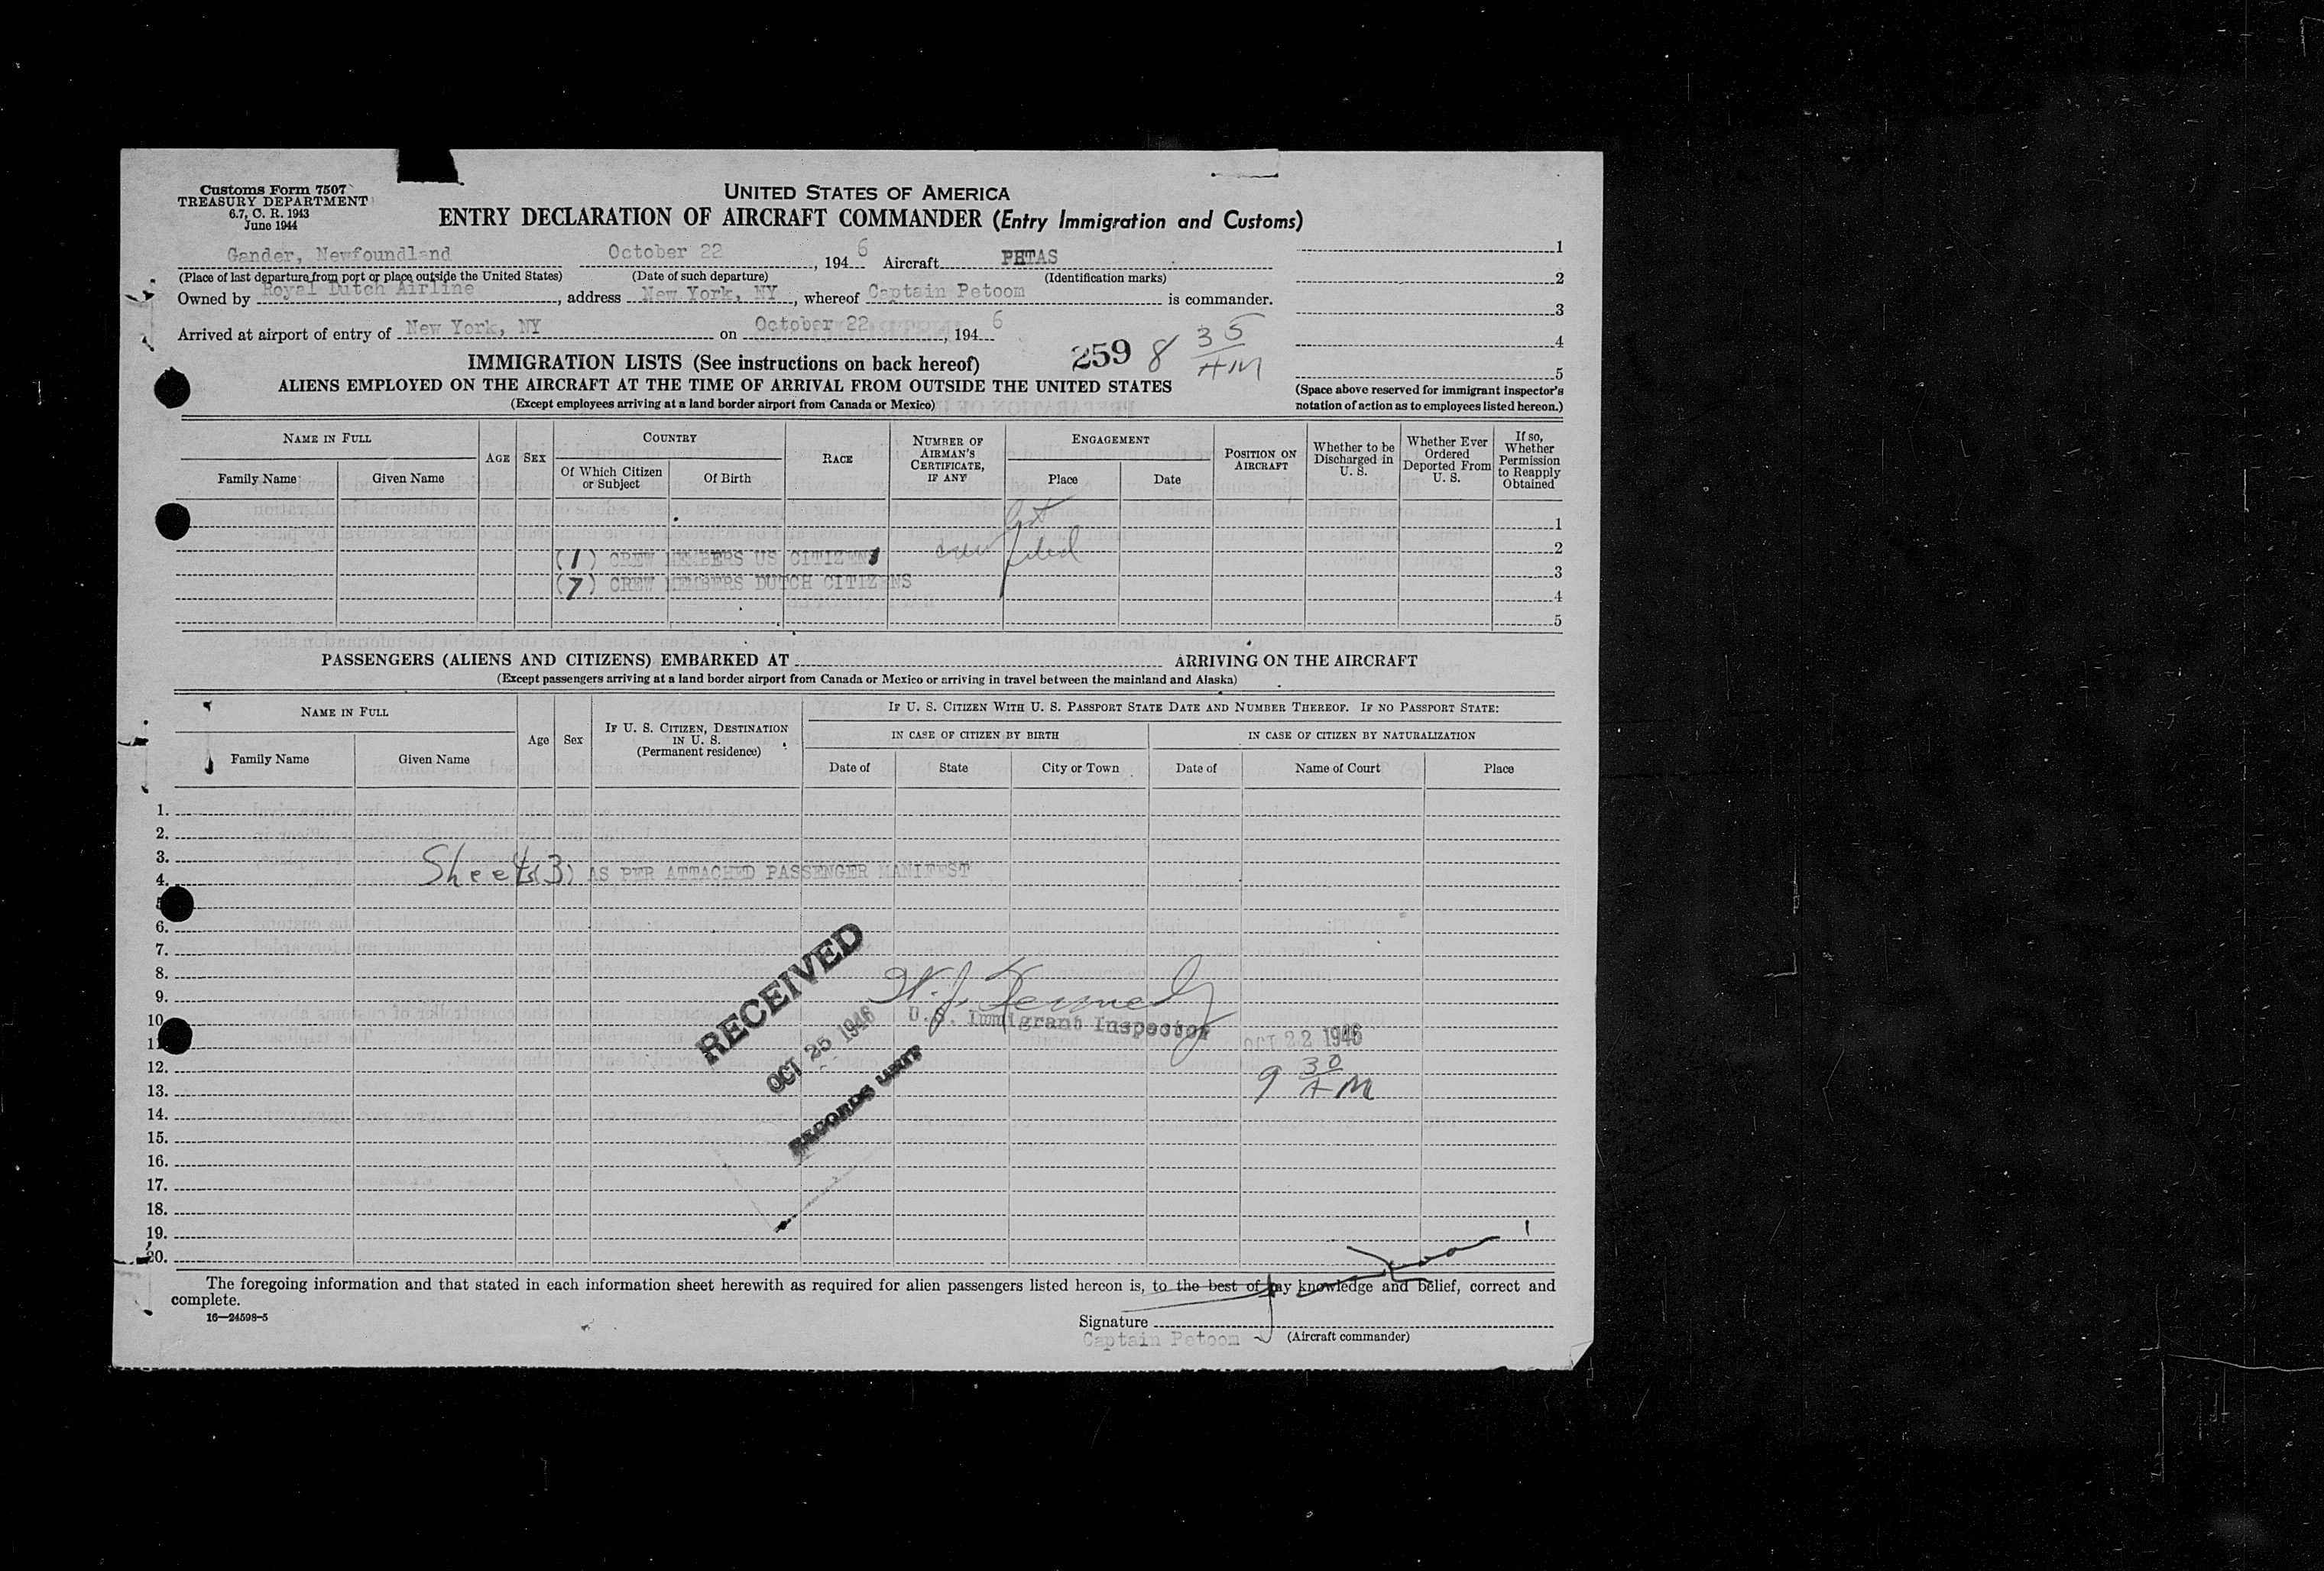 Customs Form 7507
TREASURY DEPARTMENT
6.7, C. R. 1943
June 1944
UNITED STATES OF AMERICA
ENTRY DECLARATION OF AIRCRAFT COMMANDER (Entry Immigration and Customs)
Gander, Newfoundland October 22, 1946 Aircraft PHTAS
(Place of last departure from port or place outside the United States) (Date of such departure) (Identification marks)
Owned by Royal Dutch Airline, address New York, NY, whereof Captain Petoom is commander.
Arrived at airport of entry of New York, NY on October 22, 1946
1
2
3
4
5
(Space above reserved for immigrant inspector's
notation of action as to employees listed hereon.)
IMMIGRATION LISTS (See instructions on back hereof) 259 8 35 AM
ALIENS EMPLOYED ON THE AIRCRAFT AT THE TIME OF ARRIVAL FROM OUTSIDE THE UNITED STATES
(Except employees arriving at a land border airport from Canada or Mexico)
NAME IN FULL
Family Name
Given Name
AGE
SEX
COUNTRY
Of Which Citizen
or Subject
Of Birth
RACE
NUMBER OF
AIRMAN'S
CERTIFICATE,
IF ANY
ENGAGEMENT
Place
Date
POSITION ON
AIRCRAFT
Whether to be
Discharged in
U. S.
Whether Ever
Ordered
Deported From
U. S.
If so,
Whether
Permission
to Reapply
Obtained
1
2
(1) CREW MEMBERS US CITIZENS crew list filed
3
(7) CREW MEMBERS DUTCH CITIZENS
4
5
PASSENGERS (ALIENS AND CITIZENS) EMBARKED AT ARRIVING ON THE AIRCRAFT
(Except passengers arriving at a land border airport from Canada or Mexico or arriving in travel between the mainland and Alaska)
NAME IN FULL
Family Name
Given Name
Age
Sex
IF U. S. CITIZEN, DESTINATION
IN U. S.
(Permanent residence)
IF U. S. CITIZEN WITH U. S. PASSPORT STATE DATE AND NUMBER THEREOF. IF NO PASSPORT STATE:
IN CASE OF CITIZEN BY BIRTH
IN CASE OF CITIZEN BY NATURALIZATION
Date of
State
City or Town
Date of
Name of Court
Place
1.
2.
3.
Sheets(3) AS PER ATTACHED PASSENGER MANIFEST
4.
6.
7.
8.
9.
10
11
12.
13.
14.
15.
16.
17.
18.
19.
20.
RECEIVED
OCT 25 1946
RECORDS UNIT
W. J. Kennedy
U.S. Immigrant Inspector
OCT 22 1946
9 30 AM
The foregoing information and that stated in each information sheet herewith as required for alien passengers listed hereon is, to the best of my knowledge and belief, correct and
complete.
16—24598-5
Signature
Captain Petoom (Aircraft commander)